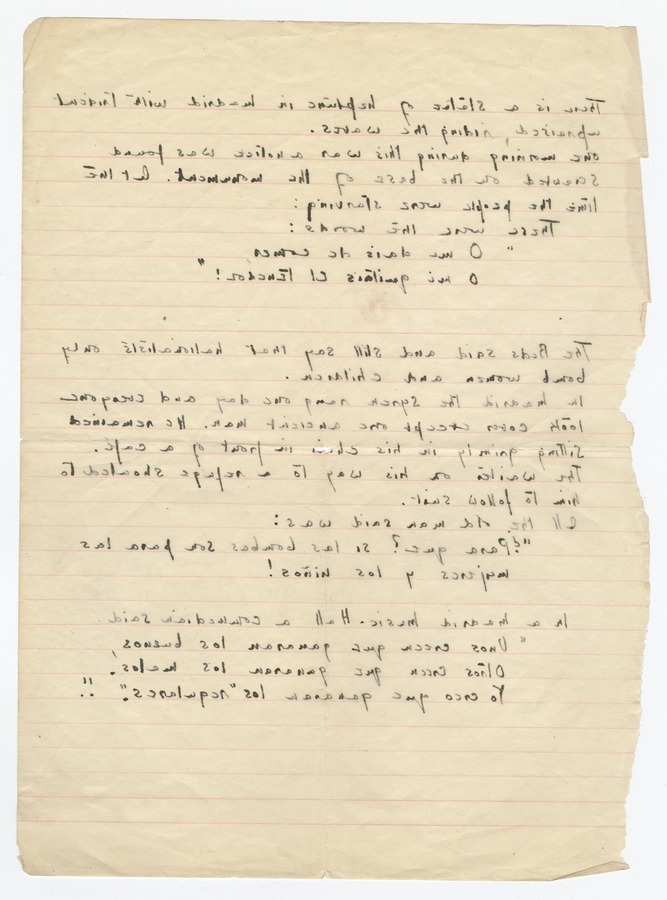 There is a statue of Neptune in Madrid with trident
upraised, riding the waves.
One morning during this war a notice was found
screwed on the base of the monument. At the
time the people were starving:
These were the words:
"O me dais de comer,
O mi quitáis el tenedor!"
The Reds said and still say that nationalists only
bomb women and children.
In Madrid the syren rang one day and everyone
took cover except one ancient man. He remained
sitting grimly in his chair in front of a café.
The waiter on his way to a refuge shouted to
him to follow suit.
All the old man said was:
"¿Para que? si las bombas son para las
mujeres y los niños!
In a Madrid Music-Hall a commedian said
"Unos creen que ganaran los buenos,
Otros creen que ganaran los malos,
Yo creo que ganaran los "regulares"."!!